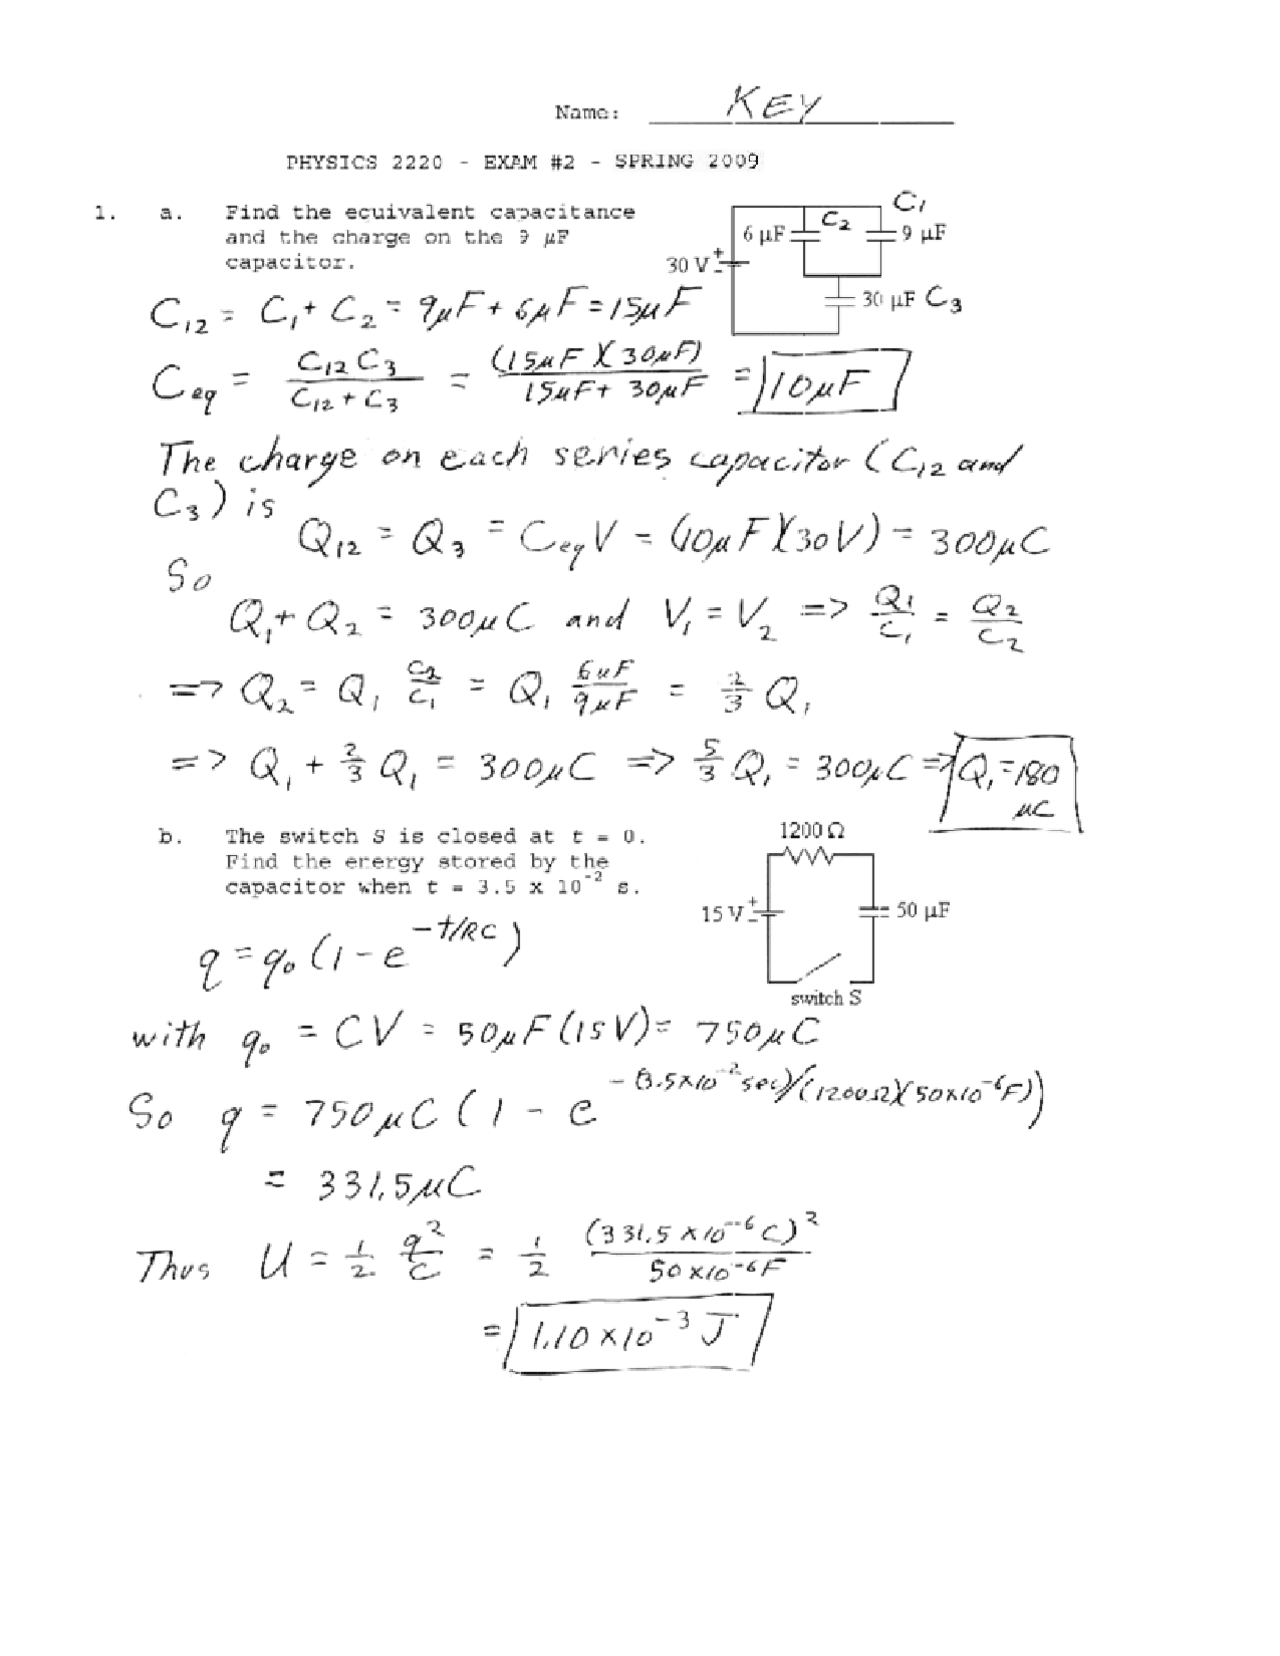 Name: KEY
PHYSICS 2220 - EXAM #2 - SPRING 2009
1. a. Find the equivalent capacitance
and the charge on the 9 µF
capacitor.
C1
6 µF C2 9 µF
30 V + -
30 µF C3
C12 = C1 + C2 = 9µF + 6µF = 15µF
Ceq = C12 C3 / (C12 + C3) = (15µF)(30µF) / (15µF + 30µF) = 10µF
The charge on each series capacitor (C12 and
C3) is
Q12 = Q3 = CeqV = (10µF)(30V) = 300µC
So
Q1 + Q2 = 300µC and V1 = V2 => Q1/C1 = Q2/C2
=> Q2 = Q1 C2/C1 = Q1 6µF/9µF = 2/3 Q1
=> Q1 + 2/3 Q1 = 300µC => 5/3 Q1 = 300µC => Q1 = 180
µC
b. The switch S is closed at t = 0.
Find the energy stored by the
capacitor when t = 3.5 x 10^-2 s.
1200 Ω
15 V + -
50 µF
switch S
q = q0 (1 - e^-t/RC)
with q0 = CV = 50µF (15V) = 750µC
So q = 750µC (1 - e^-(3.5x10^-2 sec)/(1200Ω)(50x10^-6F))
= 331.5µC
Thus U = 1/2 q^2/C = 1/2 (331.5 x 10^-6 C)^2 / 50x10^-6F
= 1.10 x 10^-3 J